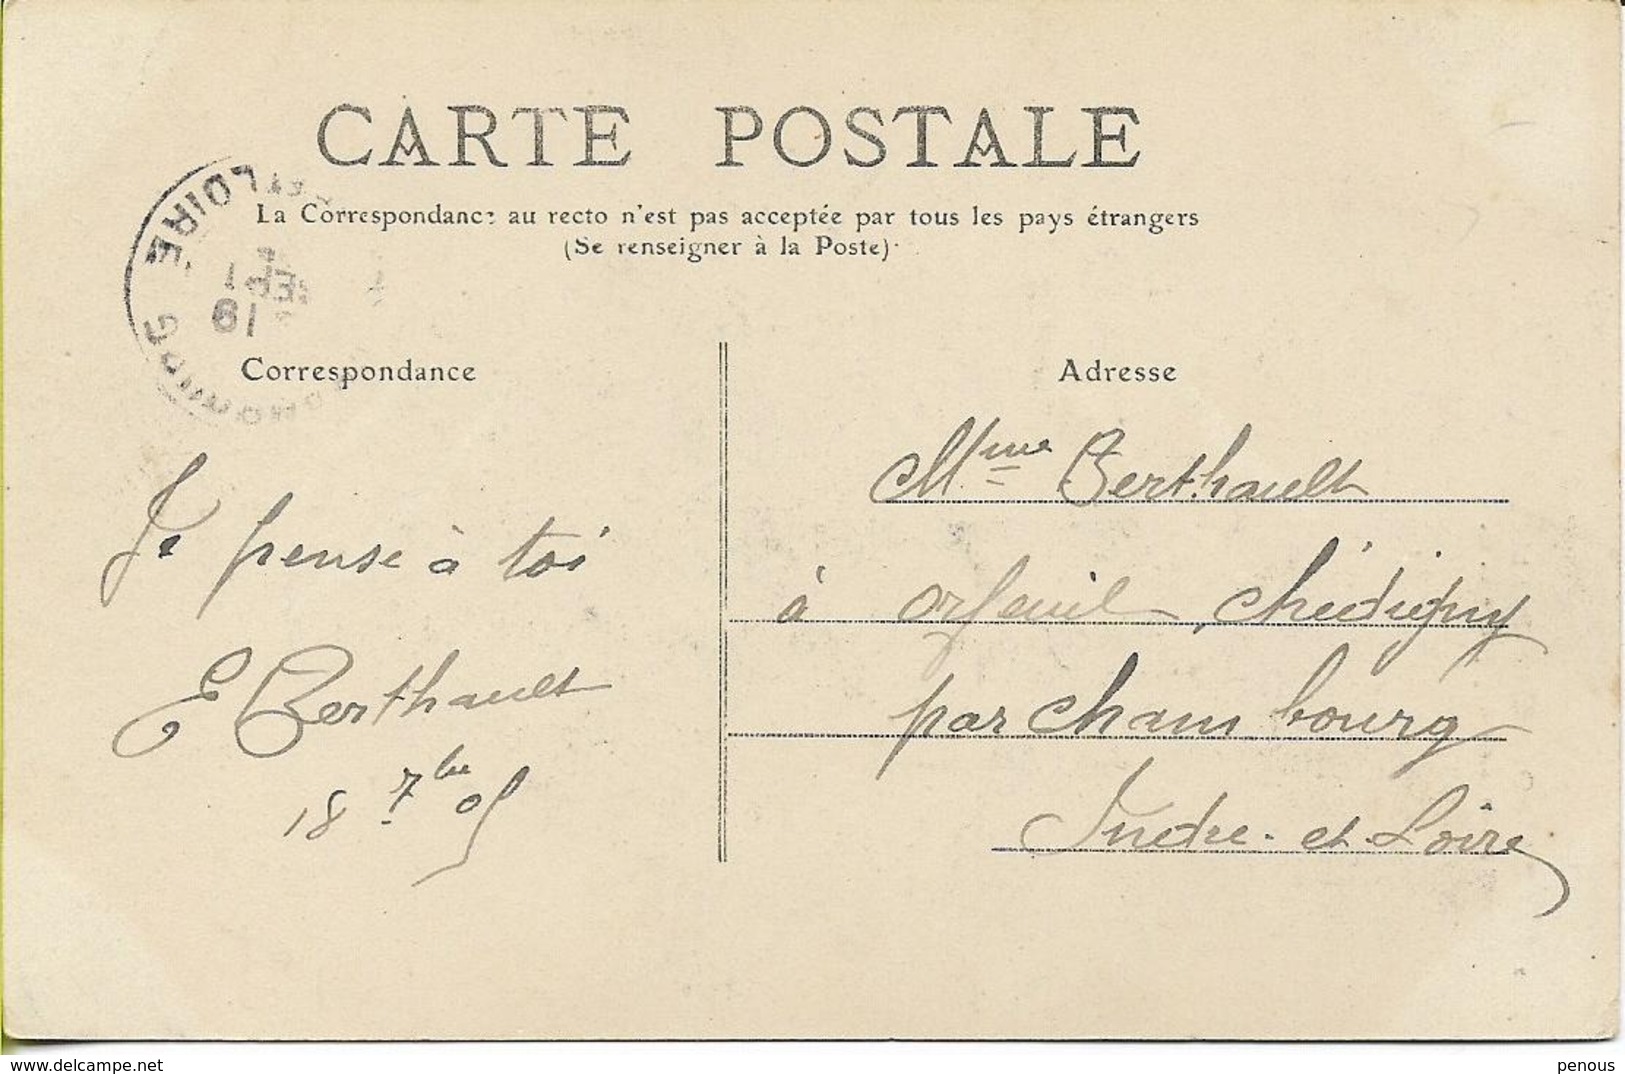 CARTE POSTALE
La Correspondance au recto n'est pas acceptée par tous les pays étrangers
(Se renseigner à la Poste)
ET LOIRE
19
Correspondance
Adresse
Je pense à toi
E Berthault
18 7bre 05
Mme Berthault
à orfeuil, chédigny
par chambourg
Indre-et-Loire
delcampe.net
penous